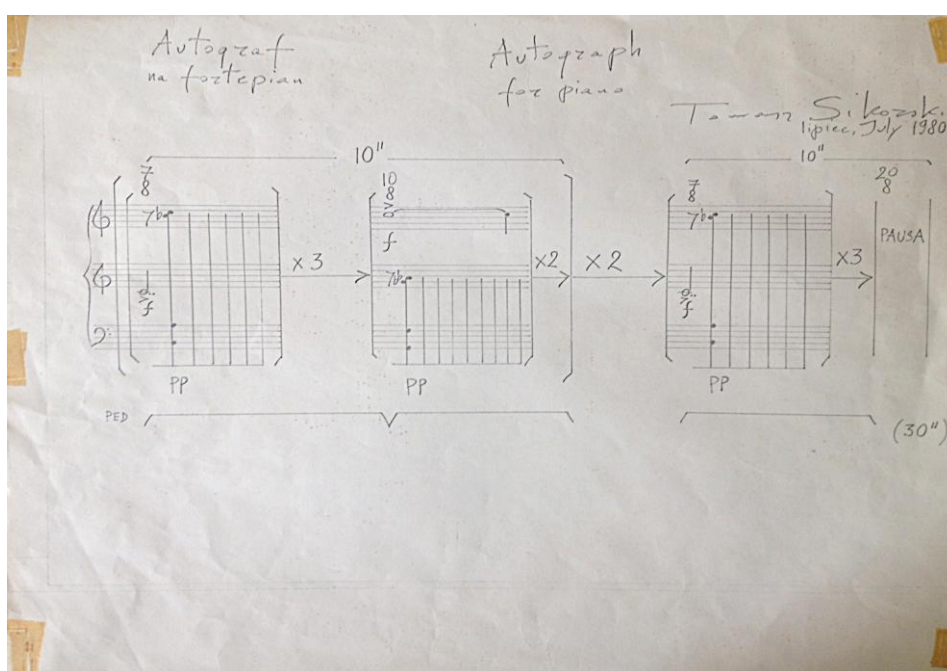 Autograf
na fortepian
Autograph
for piano
Tomasz Sikorski
lipiec, July 1980
10"
10"
7
8
10
8
7
8
20
8
f
PAUSA
x3
x2
x2
x3
f
f
PP
PP
PP
PED
(30")